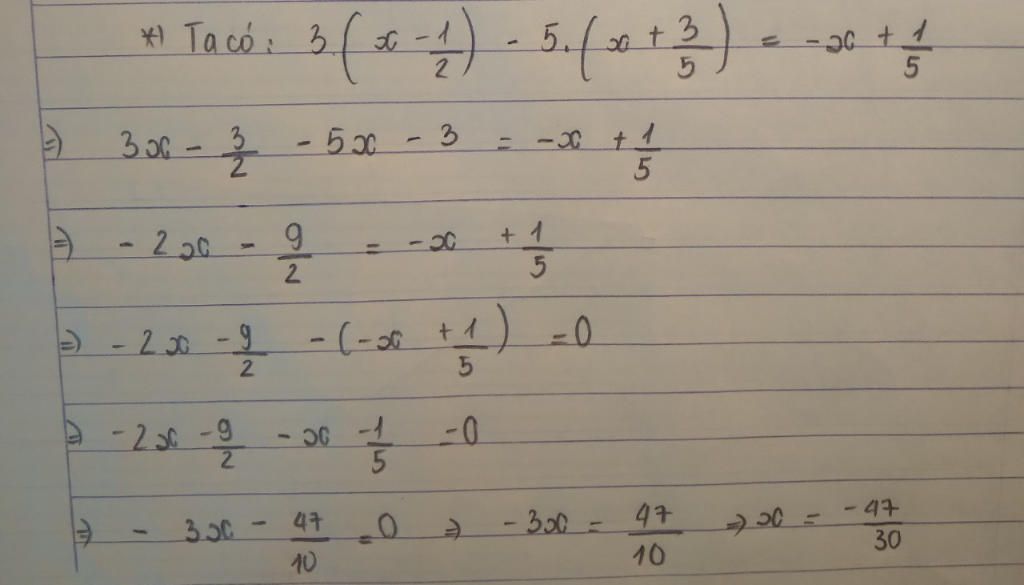 *) Ta có: 3.(x - 1/2) - 5.(x + 3/5) = -x + 1/5
=) 3x - 3/2 - 5x - 3 = -x + 1/5
=) - 2x - 9/2 = -x + 1/5
=) - 2x - 9/2 - (-x + 1/5) = 0
=) -2x - 9/2 - x - 1/5 = 0
=) - 3x - 47/10 = 0 =) -3x = 47/10 =) x = -47/30